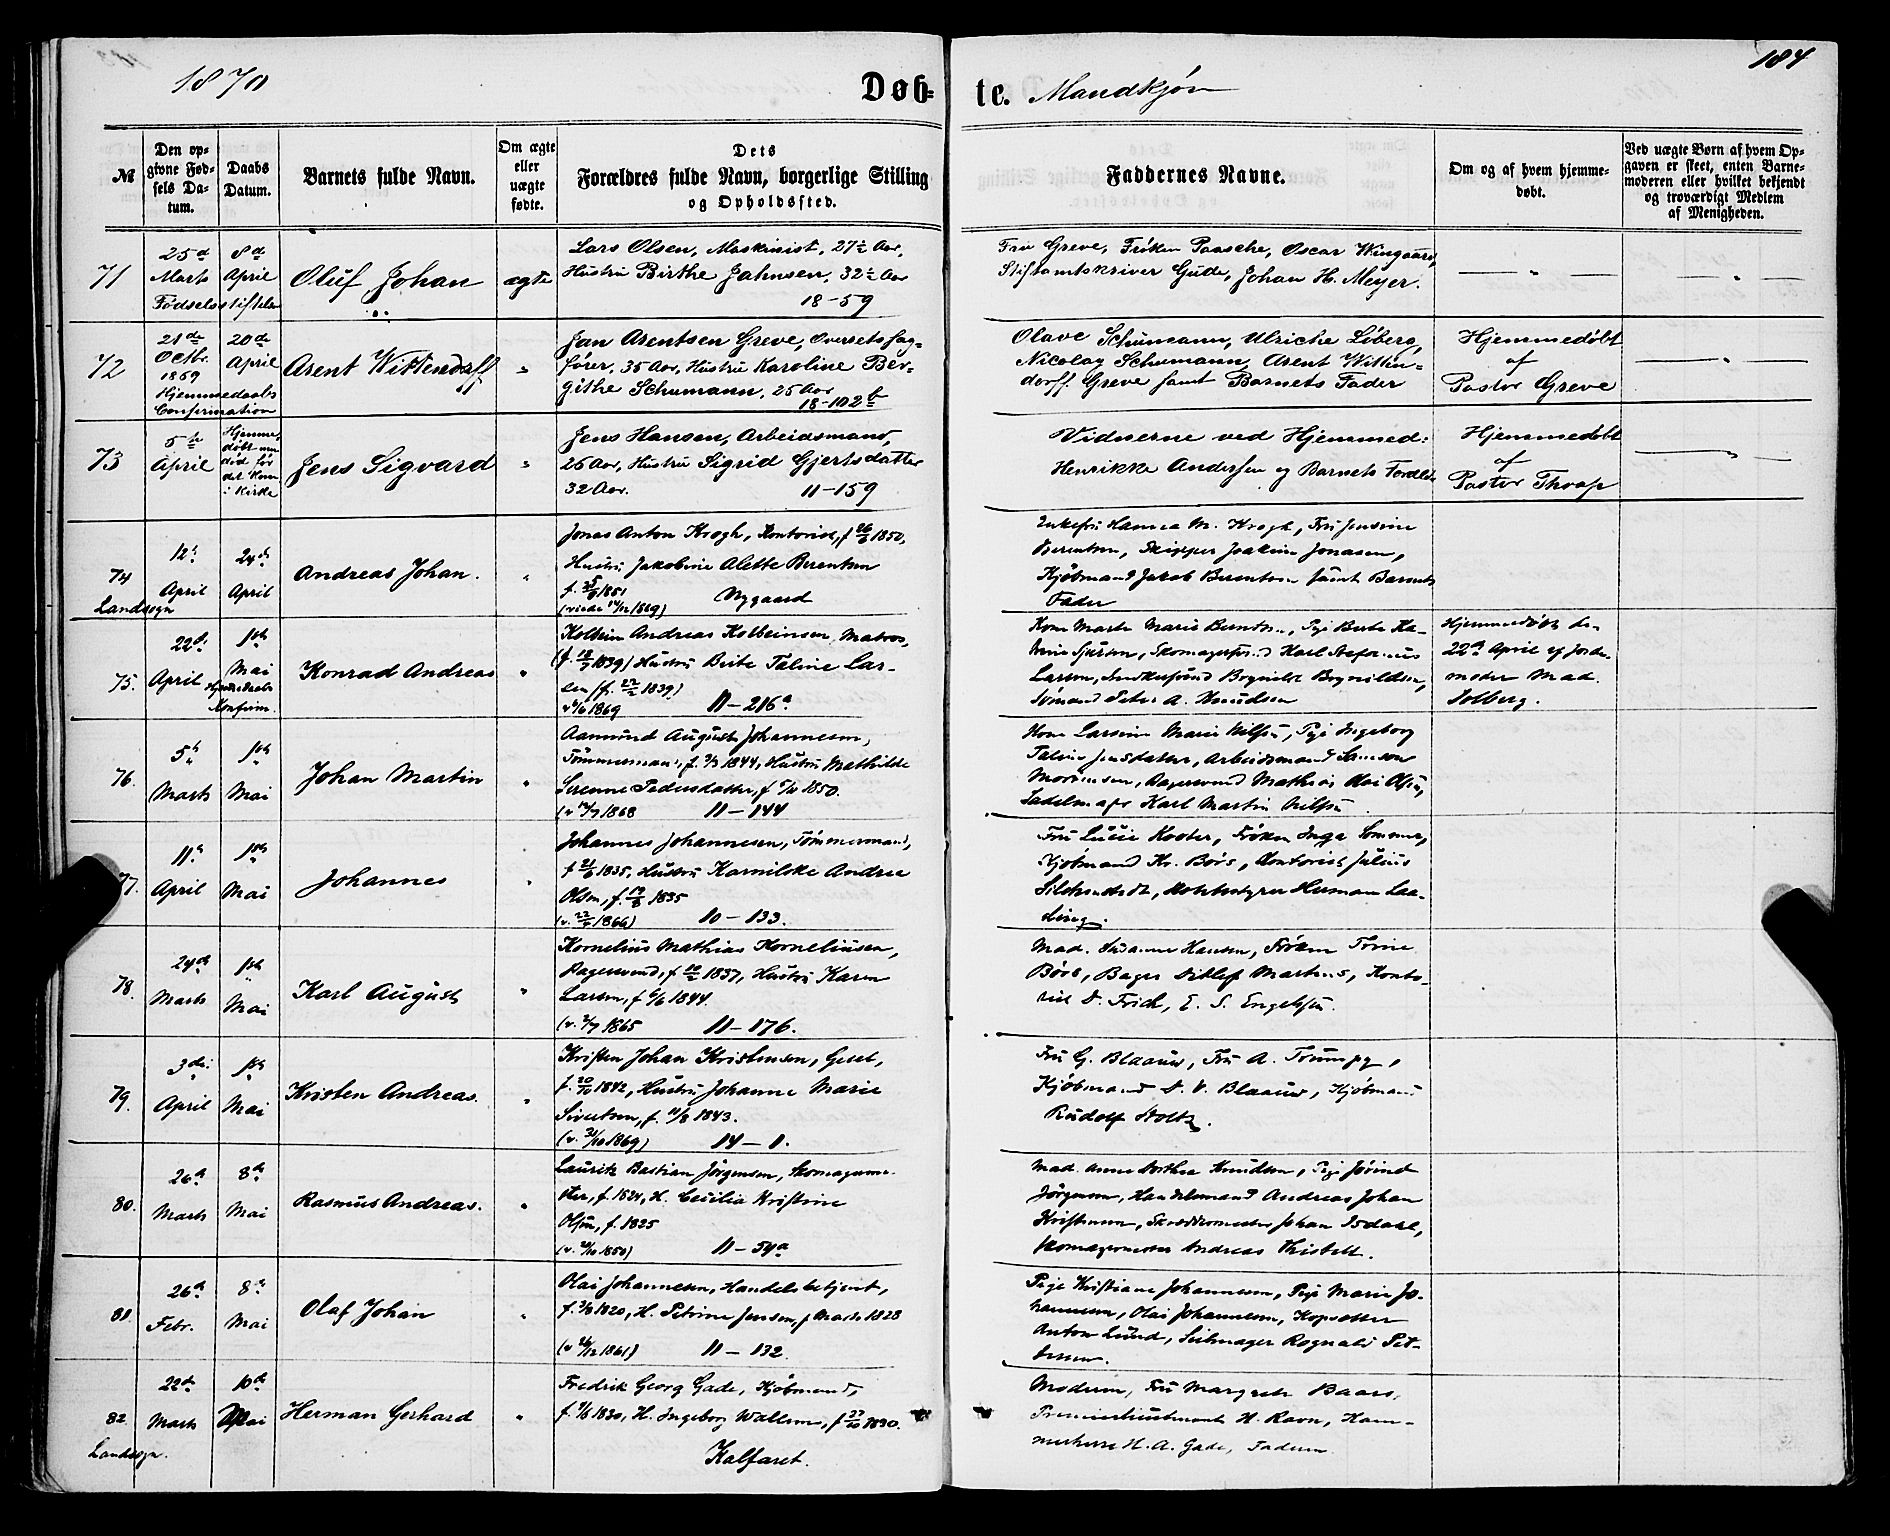 184
1870
Døb=
te. Mandkjøn
№
Den op=
givne Fød=
sels Da=
tum.
Daabs
Datum.
Barnets fulde Navn.
Om ægte
eller
uægte
fødte.
Dets
Forældres fulde Navn, borgerlige Stilling
og Opholdssted.
Faddernes Navne.
Om og af hvem hjemme=
døbt.
Ved uægte Børn af hvem Op=
gaven er skeet, enten Barne=
moderen eller hvilket bekjendt
og troværdigt Medlem
af Menigheden.
71
25de
Marts
Fødselsstiftelsen
8de
April
Oluf Johan
ægte
Lars Olsen, Maskinist, 27½ Aar,
Hustru Birthe Jahnsen, 32½ Aar
18-59
Fru Greve, Frøken Paasche, Oscar Wingaard,
Stiftamtskriver Gude, Johan H. Meyer.
72
21de
Octbr.
1869
Hjemmedaabs
Confirmation
20de
April
Arent Wittendorff
Jan Arentsen Greve, Oversetsag=
fører, 35 Aar, Hustru Karoline Ber=
githe Schumann, 25 Aar
18-102b
Olave Schumann, Ulriche Løberg,
Nicolay Schumann, Arent Witten=
dorff Greve samt Barnets Fader
Hjemmedøbt
af
Pastor Greve
73
5te
April
Hjemme,
døbt men
død før
det kom
i Kirke
Jens Sigvard
Jens Hansen, Arbeidsmand,
26 Aar, Hustru Sigrid Gjertsdatter
32 Aar. 11-159
Vidnerne ved Hjemmed:
Henrikke Andersen og Barnets Forældre
Hjemmedøbt
af
Pastor Thrap
74
Landsogn
12te
April
24de
April
Andreas Johan.
Jonas Anton Krogh, Kontorist, f 26/6 1850,
Hustru Jakobine Alette Berentsen
f. 5/6 1851
(viede 14/12 1869) Nygaard
Enkefru Hanna M. Krogh, Fru Jensine
Berentsen, Skipper Joakim Jonasen,
Kjøbmand Jakob Berentsen samt Barnets
Fader
75.
22de
April
1ste
Mai
Hjemmedaabs
Konfirm.
Konrad Andreas
Kolbein Andreas Kolbeinsen, Matros,
(f. 18/7 1839) Hustru Berte Taline Lar-
sen (f. 27/2 1839)
v 4/6 1869 11-216a
Kone Marte Marie Berntsen, Pige Berte Ka-
Larsen, Snedkersvend Bognild Bognildsen,
Sømand Peter A. Knudsen
Hjemmedøbt den
22de April af Jorde-
moder Mad.
Solberg.
76.
5te
Marts
1ste
Mai
Johan Martin
Aamund August Johannesen,
Tømmermand, f. 9/3 1844, Hustru Mathilde
Serenne Pedersdatter, f 5/10 1850.
(v 12/7 1868 11-144
Kone Larsine Marie Nilsen, Pige Ingeborg
Taline Jensdatter, Arbeidsmand Samson
Mortensen, Bagersvend Mathias Olai Olsen,
Sadelmager Karl Martin Nilsen
77.
11te
April
1ste
Mai
Johannes
Johannes Johannesen, Tømmermand,
f 21/6 1835, Hustru Karnilske Andrea
Olsen, f. 19/8 1835
(v. 27/5 1866) 10-133.
Fru Lucie Koster, Frøken Inga Sommer,
Kjøbmand Kr. Børs, Kontorist Julius
Herman Laa-
78.
24de
Marts
1ste
Mai
Karl August
Kornelius Mathias Korneliusen,
Bagersvend, f 22/2 1837, Hustru Karen
Larsen, f 6/6 1844.
(v. 2/7 1865 11-176.
Mad. Susanne Hansen, Frøken Tonine
Børs, Bager Ditlef Martens, Konto-
rist D. Frich, E. S. Engelsen.
79.
3die
April
1ste
Mai
Kristen Andreas.
Kristen Johan Kristensen, Gesel,
f. 20/11 1842, Hustru Johanne Marie
Sivertsen, f. 11/8 1843.
(v. 31/10 1869) 14-1.
Fru G. Blaauw, Fru A. Trumpy,
Kjøbmand D. V. Blaauw, Kjøbmand
Rudolf Stoltz.
80.
26de
Marts
8de
Mai
Rasmus Andreas.
Lauritz Bastian Jørgensen, Skomagerme-
ster, f. 1824, H. Cecilia Kristine
Olsen, f. 1825
(v. 20/10 1850) 11-54a
Mad. Anne Dorthea Knudsen, Pige Jørind
Jørgensen, Handelsmand Andreas Johan
Kristensen, Skræddermester Johan Isdahl,
Skomagermester Andreas Thistel.
81.
26de
Febr.
8de
Mai
Olaf Johan
Olai Johannesen, Handelsbetjent,
f. 3/9 1820, H. Petrine Jensen, f Marts 1828
(v 26/12 1861) 11-132.
Pige Kristiane Johannesen, Pige Marie Jo-
hannesen, Olai Johannesen, Kopsetter
Anton Lund, Seilmager Rognald Pet-
tersen.
82.
Landsogn.
22de
Marts
10de
Mai
Herman Gerhard
Fredrik Georg Gade, Kjøbmand,
f. 7/6 1830, H. Ingeborg Wallem, f 27/10 1830.
Kalfaret.
Modren, Fru Margrete Baars,
Premierlieutenant H. Ravn, Kam-
merherre H. A. Gade, Faderen